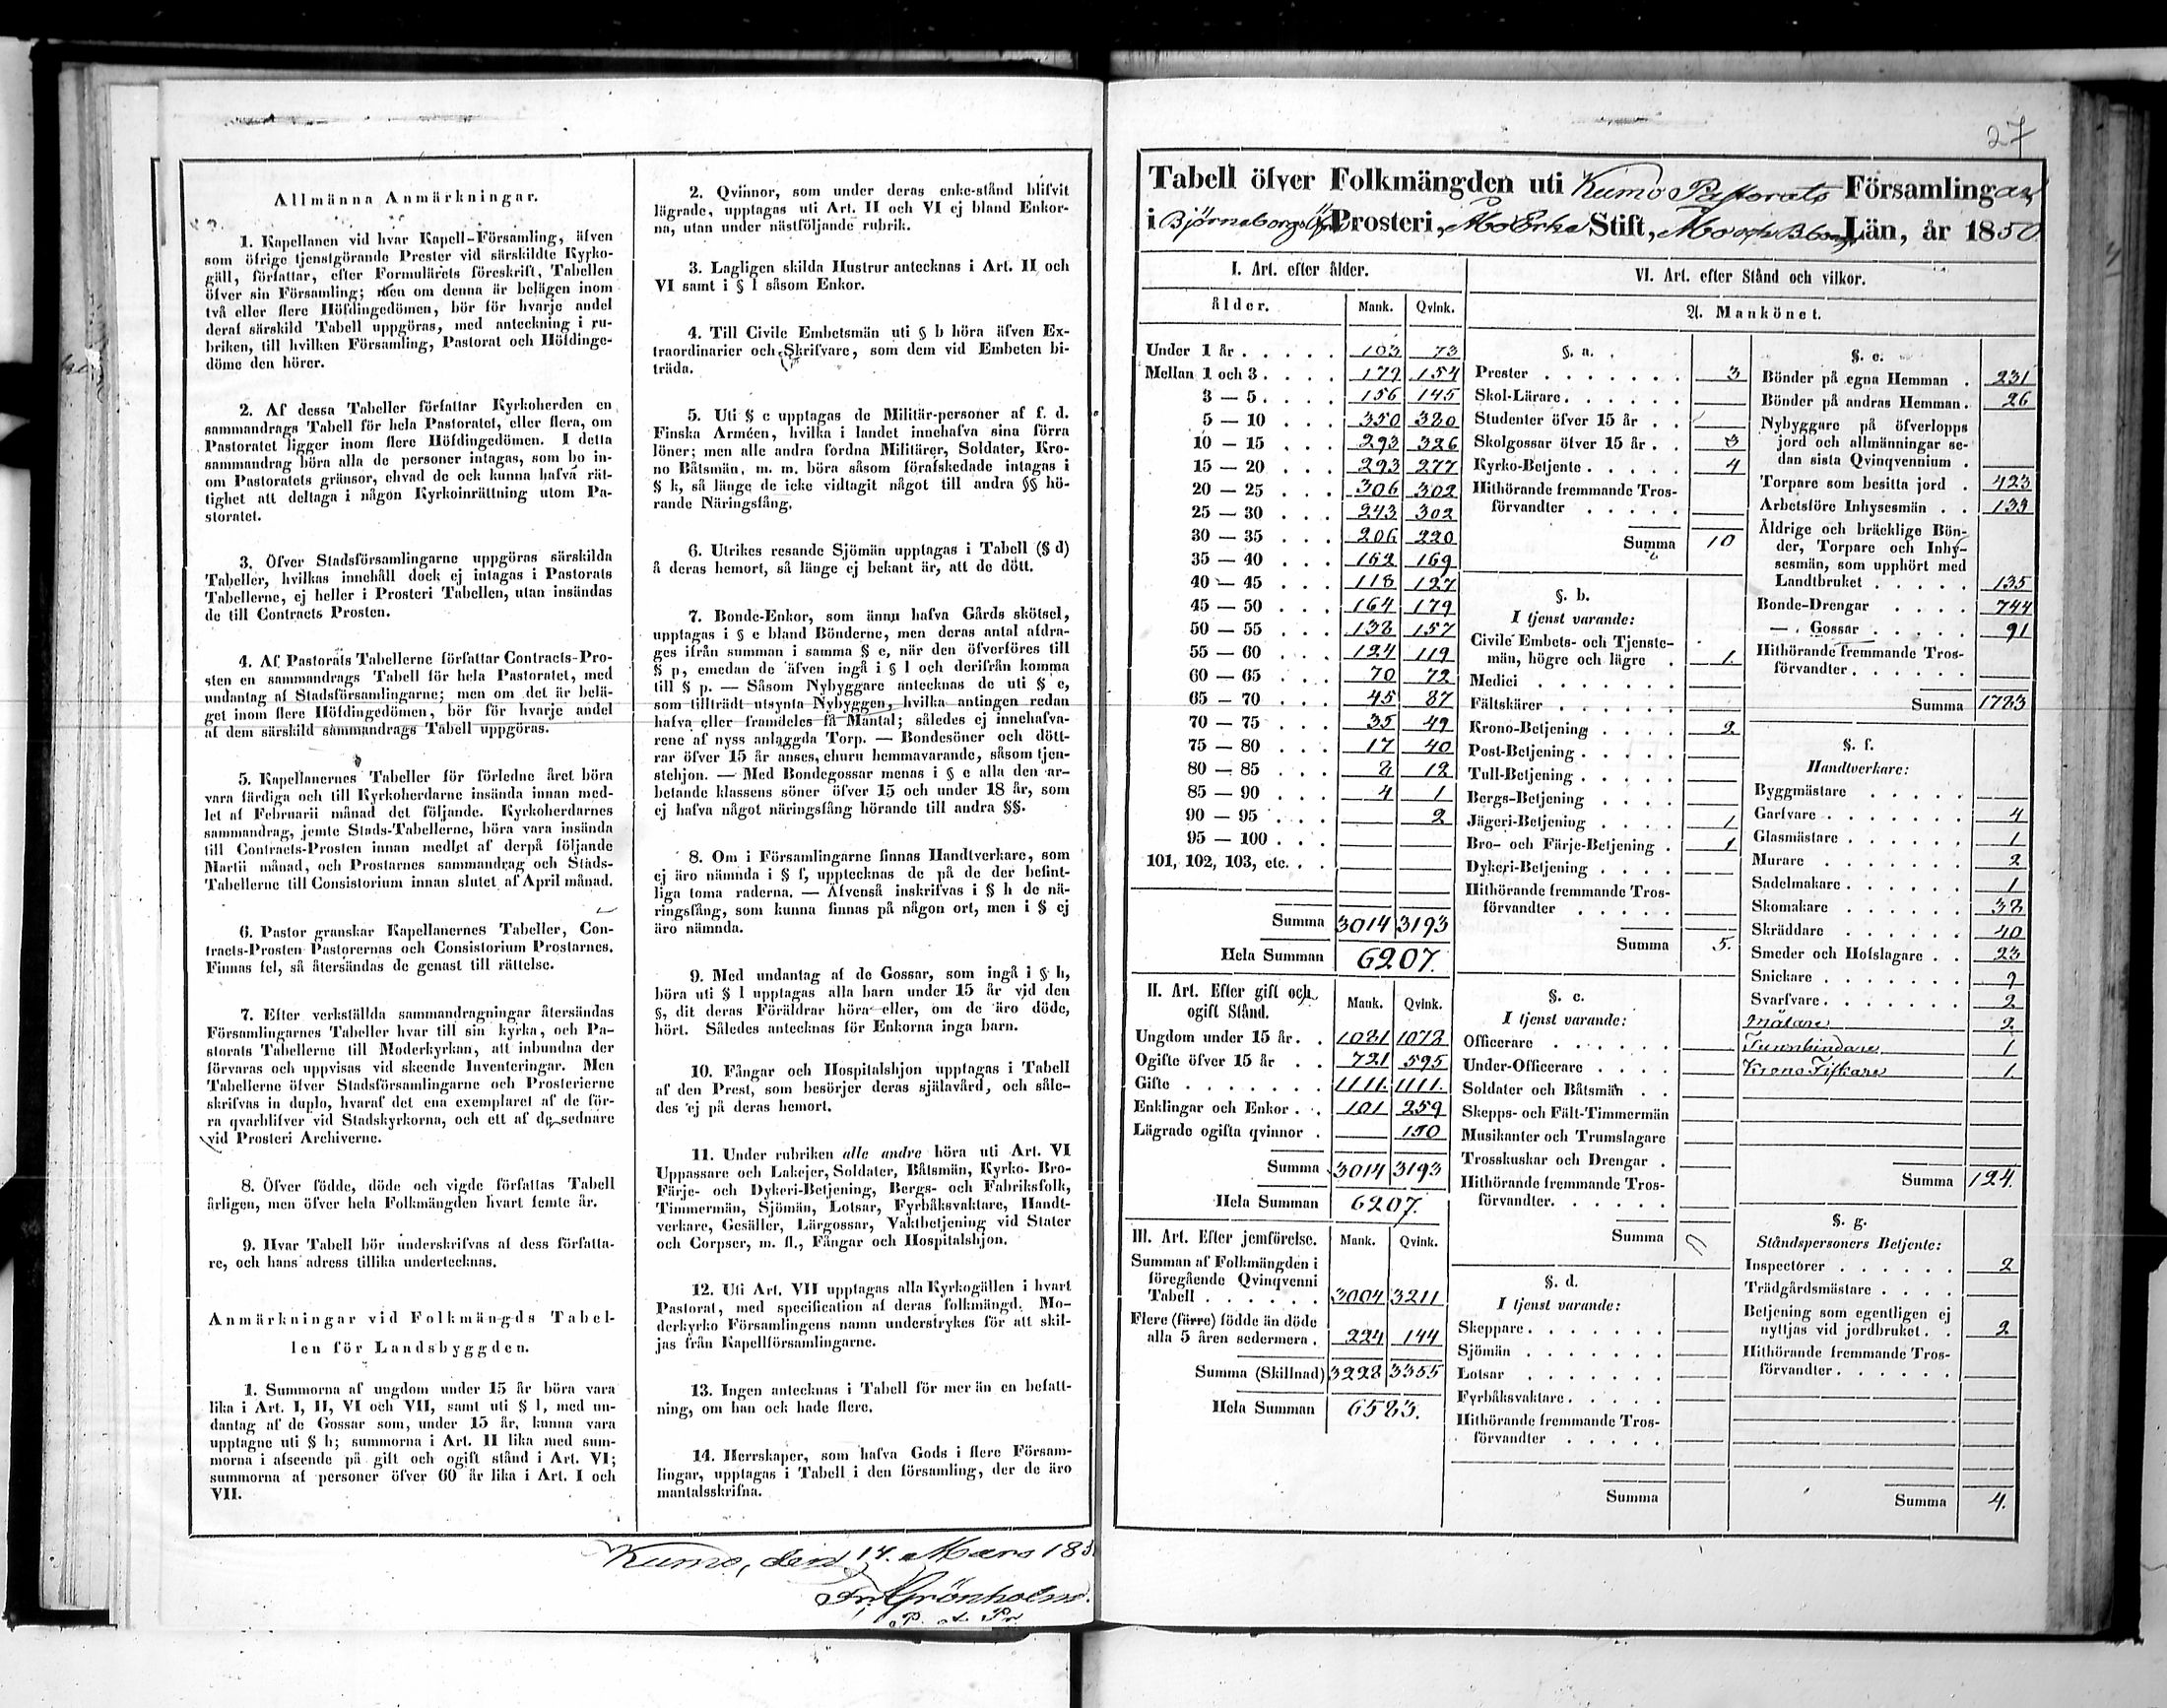 Allmänna Anmärkningar.
1. Kapellanen vid hvar Kapell-Församling, äfven
som öfrige tjenstgörande Prester vid särskildte Kyrko-
gäll, författar, efter Formulärets föreskrift, Tabellen
öfver sin Församling; men om denna är belägen inom
två eller flere Höfdingedömen, bör för hvarje andel
deraf särskild Tabell uppgöras, med anteckning i ru-
briken, till hvilken Församling, Pastorat och Höfdinge-
döme den hörer.
2. Af dessa Tabeller författar Kyrkoherden en
sammandrags Tabell för hela Pastoratet, eller flera, om
Pastoratet ligger inom flere Höfdingedömen. I detta
sammandrag böra alla de personer intagas, som bo in-
om Pastoratets gränsor, ehvad de ock kunna hafva rät-
tighet att deltaga i någon Kyrkoinrättning utom Pa-
storatet.
3. Öfver Stadsförsamlingarne uppgöras särskilda
Tabeller, hvilkas innehåll dock ej intagas i Pastorats
Tabellerne, ej heller i Prosteri Tabellen, utan insändas
de till Contracts Prosten.
4. Af Pastorats Tabellerne författar Contracts-Pro-
sten en sammandrags Tabell för hela Pastoratet, med
undantag af Stadsförsamlingarne; men om det är belä-
get inom flere Höfdingedömen, bör för hvarje andel
af dem särskild sammandrags Tabell uppgöras.
5. Kapellanernes Tabeller för förledne året böra
vara färdiga och till Kyrkoherdarne insända innan med-
let af Februarii månad det följande. Kyrkoherdarnes
sammandrag, jemte Stads-Tabellerne, böra vara insända
till Contracts-Prosten innan medlet af derpå följande
Martii månad, och Prostarnes sammandrag och Stads-
Tabellerne till Consistorium innan slutet af April månad.
6. Pastor granskar Kapellanernes Tabeller, Con-
tracts-Prosten Pastorernas och Consistorium Prostarnes.
Finnas fel, så återsändas de genast till rättelse.
7. Efter verkställda sammandragningar återsändas
Församlingarnes Tabeller hvar till sin kyrka, och Pa-
storats Tabellerne till Moderkyrkan, att inbundna der
förvaras och uppvisas vid skeende Inventeringar. Men
Tabellerne öfver Stadsförsamlingarne och Prosterierne
skrifvas in duplo, hvaraf det ena exemplaret af de för-
ra qvarblifver vid Stadskyrkorna, och ett af de sednare
vid Prosteri Archiverne.
8. Öfver födde, döde och vigde författas Tabell
årligen, men öfver hela Folkmängden hvart femte år.
9. Hvar Tabell bör underskrifvas af dess författa-
re, och hans adress tillika undertecknas.
Anmärkningar vid Folkmängds Tabel-
len för Landsbyggden.
1. Summorna af ungdom under 15 år böra vara
lika i Art. I, II, VI och VII, samt uti § l, med un-
dantag af de Gossar som, under 15 år, kunna vara
upptagne uti § h; summorna i Art. II lika med sum-
morna i afseende på gift och ogift stånd i Art. VI;
summorna af personer öfver 60 år lika i Art. I och
VII.
2. Qvinnor, som under deras enke-stånd blifvit
lägrade, upptagas uti Art. II och VI ej bland Enkor-
na, utan under nästföljande rubrik.
3. Lagligen skilda Hustrur antecknas i Art. II och
VI samt i § l såsom Enkor.
4. Till Civile Embetsmän uti § b höra äfven Ex-
traordinarier och Skrifvare, som dem vid Embeten bi-
träda.
5. Uti § c upptagas de Militär-personer af f. d.
Finska Arméen, hvilka i landet innehafva sina förra
löner; men alle andra fordna Militärer, Soldater, Kro-
no Båtsmän, m. m. böra såsom förafskedade intagas i
§ k, så länge de icke vidtagit något till andra §§ hö-
rande Näringsfång.
6. Utrikes resande Sjömän upptagas i Tabell (§ d)
å deras hemort, så länge ej bekant är, att de dött.
7. Bonde-Enkor, som ännu hafva Gårds skötsel,
upptagas i § e bland Bönderne, men deras antal afdra-
ges ifrån summan i samma § e, när den öfverföres till
§ p, emedan de äfven ingå i § l och derifrån komma
till § p. — Såsom Nybyggare antecknas de uti § e,
som tillträdt utsynta Nybyggen, hvilka antingen redan
hafva eller framdeles få Mantal; således ej innehafva-
rene af nyss anlaggda Torp. — Bondesöner och dött-
rar öfver 15 år anses, churu hemmavarande, såsom tjen-
stehjon. — Med Bondegossar menas i § e alla den ar-
betande klassens söner öfver 15 och under 18 år, som
ej hafva något näringsfång hörande till andra §§.
8. Om i Församlingarne finnas Handtverkare, som
ej äro nämnda i § f, upptecknas de på de der befint-
liga toma raderna. — Äfvenså inskrifvas i § h de nä-
ringsfång, som kunna finnas på någon ort, men i § ej
äro nämnda.
9. Med undantag af de Gossar, som ingå i § h,
böra uti § l upptagas alla barn under 15 år vid den
§, dit deras Föräldrar höra eller, om de äro döde,
hört. Således antecknas för Enkorna inga barn.
10. Fångar och Hospitalshjon upptagas i Tabell
af den Prest, som besörjer deras själavård, och såle-
des ej på deras hemort.
11. Under rubriken alle andre höra uti Art. VI
Uppassare och Lakejer, Soldater, Båtsmän, Kyrko- Bro-
Färje- och Dykeri-Betjening, Bergs- och Fabriksfolk,
Timmermän, Sjömän, Lotsar, Fyrbåksvaktare, Handt-
verkare, Gesäller, Lärgossar, Vaktbetjening vid Stater
och Corpser, m. fl., Fångar och Hospitalshjon.
12. Uti Art. VII upptagas alla Kyrkogällen i hvart
Pastorat, med specification af deras folkmängd. Mo-
derkyrko Församlingens namn understrykes för att skil-
jas från Kapellförsamlingarne.
13. Ingen antecknas i Tabell för mer än en befatt-
ning, om han ock hade flere.
14. Herrskaper, som hafva Gods i flere Försam-
lingar, upptagas i Tabell i den församling, der de äro
mantalsskrifna.
Kumo, den 14. Mars 185
Fr. Grönholm.
P. A. Pr.
27
Tabell öfver Folkmängden uti Kumo Pastorats Församlingar
i Björneborgs Prosteri, Åbo Erke Stift, Åbo och Bborgs Län, år 1850.
I. Art. efter ålder.
Ålder. Mank. Qvink.
Under 1 år 103 73
Mellan 1 och 3 179 154
3 — 5 156 145
5 — 10 350 380
10 — 15 293 326
15 — 20 293 277
20 — 25 306 302
25 — 30 243 302
30 — 35 206 220
35 — 40 162 169
40 — 45 118 127
45 — 50 164 179
50 — 55 138 157
55 — 60 124 119
60 — 65 70 72
65 — 70 45 87
70 — 75 35 49
75 — 80 17 40
80 — 85 8 12
85 — 90 4 1
90 — 95 2
95 — 100
101, 102, 103, etc.
Summa 3014 3193
Hela Summan 6207.
II. Art. Efter gift och
ogift Stånd. Mank. Qvink.
Ungdom under 15 år 1081 1078
Ogifte öfver 15 år 721 595
Gifte 1111. 1111.
Enklingar och Enkor 101 259
Lägrade ogifta qvinnor 150
Summa 3014 3193
Hela Summan 6207.
III. Art. Efter jemförelse. Mank. Qvink.
Summan af Folkmängden i
föregående Qvinqvenni
Tabell 3004 3211
Flere (färre) födde än döde
alla 5 åren sedermera 224 144
Summa (Skillnad) 3228 3355
Hela Summan 6583.
VI. Art. efter Stånd och vilkor.
A. Mankönet.
§. a.
Prester 3
Skol-Lärare
Studenter öfver 15 år
Skolgossar öfver 15 år 3
Kyrko-Betjente 4
Hithörande fremmande Tros-
förvandter
Summa 10
§. b.
I tjenst varande:
Civile Embets- och Tjenste-
män, högre och lägre 1.
Medici
Fältskärer
Krono-Betjening 2
Post-Betjening
Tull-Betjening
Bergs-Betjening
Jägeri-Betjening 1
Bro- och Färje-Betjening 1
Dykeri-Betjening
Hithörande fremmande Tros-
förvandter
Summa 5.
§. c.
I tjenst varande:
Officerare
Under-Officerare
Soldater och Båtsmän
Skepps- och Fält-Timmermän
Musikanter och Trumslagare
Trosskuskar och Drengar
Hithörande fremmande Tros-
förvandter.
Summa 0
§. d.
I tjenst varande:
Skeppare
Sjömän
Lotsar
Fyrbåksvaktare
Hithörande fremmande Tros-
förvandter
Summa
§. e.
Bönder på egna Hemman 231
Bönder på andras Hemman 26
Nybyggare på öfverlopps
jord och allmänningar se-
dan sista Qvinqvennium
Torpare som besitta jord 423
Arbetsföre Inhysesmän 133
Åldrige och bräcklige Bön-
der, Torpare och Inhy-
sesmän, som upphört med
Landtbruket 135
Bonde-Drengar 744
— Gossar 91
Hithörande fremmande Tros-
förvandter
Summa 1783
§. f.
Handtverkare:
Byggmästare
Garfvare 4
Glasmästare 1
Murare 2
Sadelmakare 1
Skomakare 38
Skräddare 40
Smeder och Hofslagare 23
Snickare 9
Svarfvare 2
Målare 2
Tunnbindare 1
Krono Fiskare 1.
Summa 124.
§. g.
Ståndspersoners Betjente:
Inspectorer 2
Trädgårdsmästare
Betjening som egentligen ej
nyttjas vid jordbruket 2
Hithörande fremmande Tros-
förvandter
Summa 4.